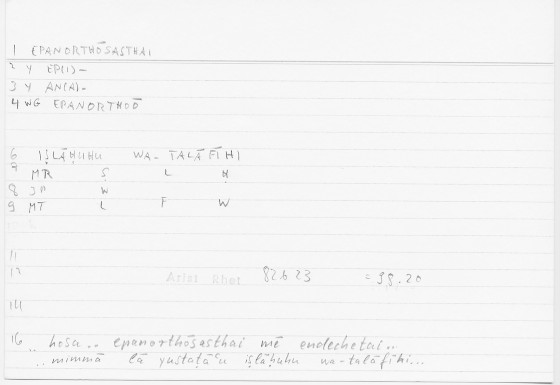 1 EPANORTHŌSASTHAI
2 Y EP(I)-
3 Y AN(A)-
4 WG EPANORTHOŌ
6 IṢLĀḤUHU WA-TALĀFĪHI
7 MR Ṣ L Ḥ
8 JN W
9 MT L F W
11
12 Arist Rhet 82b23 = 98.20
14
16 ..hosa.. epanorthōsasthai mē endechetai..
..mimmā lā yustaṭāʿu iṣlāḥuhu wa-talāfīhi...